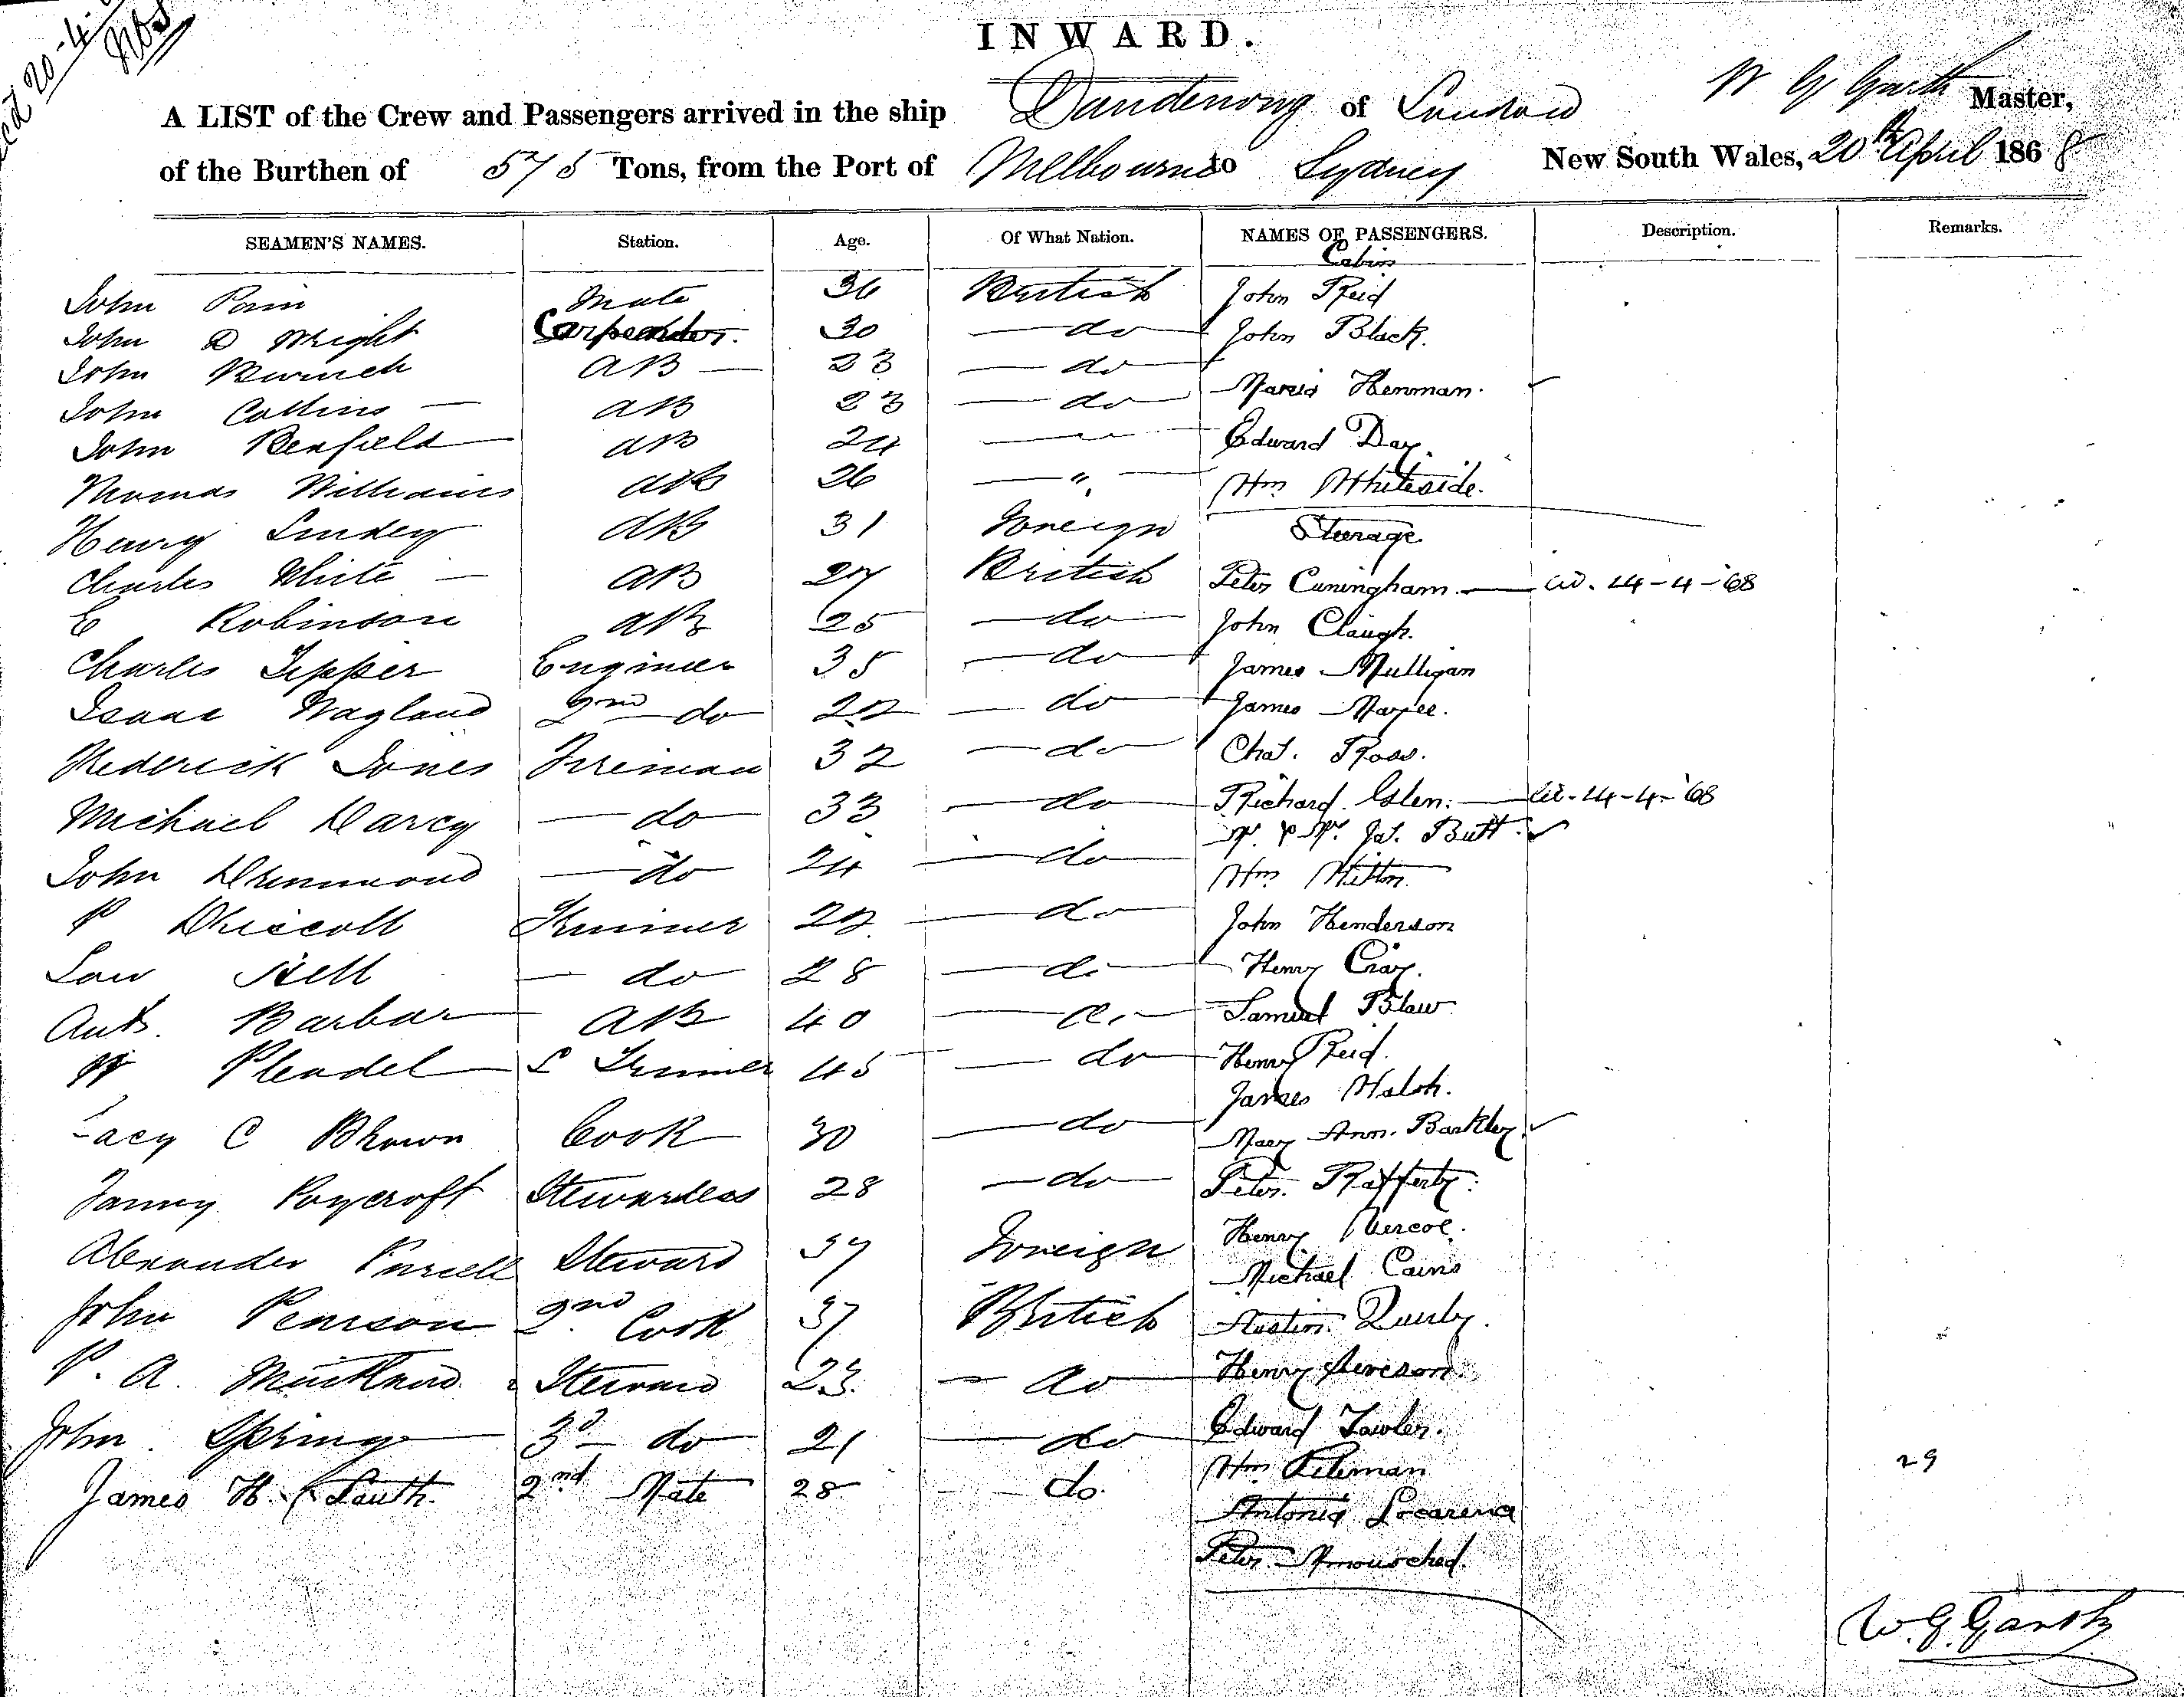 INWARD.
A LIST of the Crew and Passengers arrived in the ship Dandenong of London W G Garth Master,
of the Burthen of 575 Tons, from the Port of Melbourne to Sydney New South Wales, 20th April 1868
SEAMEN'S NAMES. Station. Age. Of What Nation. NAMES OF PASSENGERS. Description. Remarks.
Cabin
John Pain Mate 36 British John Reid
John D Wright Carpenter. 30 do John Black.
John AB 23 do
Maria Henman.
John Collins AB 23 do
John Benfield AB 24 Edward Day.
Thomas Williams AB 26 " Wm Whiteside.
Henry Lindey AB 31 Foreign Steerage
Charles White AB 27 British Peter Cuningham 14-4-'68
E Robinson AB 25 do John Claugh.
Charles Tepper Engineer 35 do James Mulligan
Isaac Wagland 2nd do 22 do James Magee.
Frederick Jones Fireman 32 do Chas. Ross.
Michael Darcy do 33 do Richard Glen. 14-4-'68
Jas. Butt.
John Drummond do 24 do Wm Mitton.
P Driscoll Trimmer 22 do John Henderson
Law Bell do 28 do Henry Cray.
Ant. Barbar AB 40 do Samuel Blaw
W Plendel S Trimmer 45 do Henry Reid.
James Walsh.
Lacy C Brown Cook 30 do Mary Ann Barkley.
Fanny Roycroft Stewardess 28 do Peter Rafferty.
Alexander Purcell Steward 37 Foreign Henry Vercoe.
Michael Cains
John Pearson 2nd Cook 37 British Austin Quirly.
P. A. Steward 23 do Henry Iveson.
John Spring 3d do 21 do Edward Fowler.
James H. South. 2nd Mate 28 do. Wm Pitman 29
Antonio Locarena
Peter
W. G. Garth